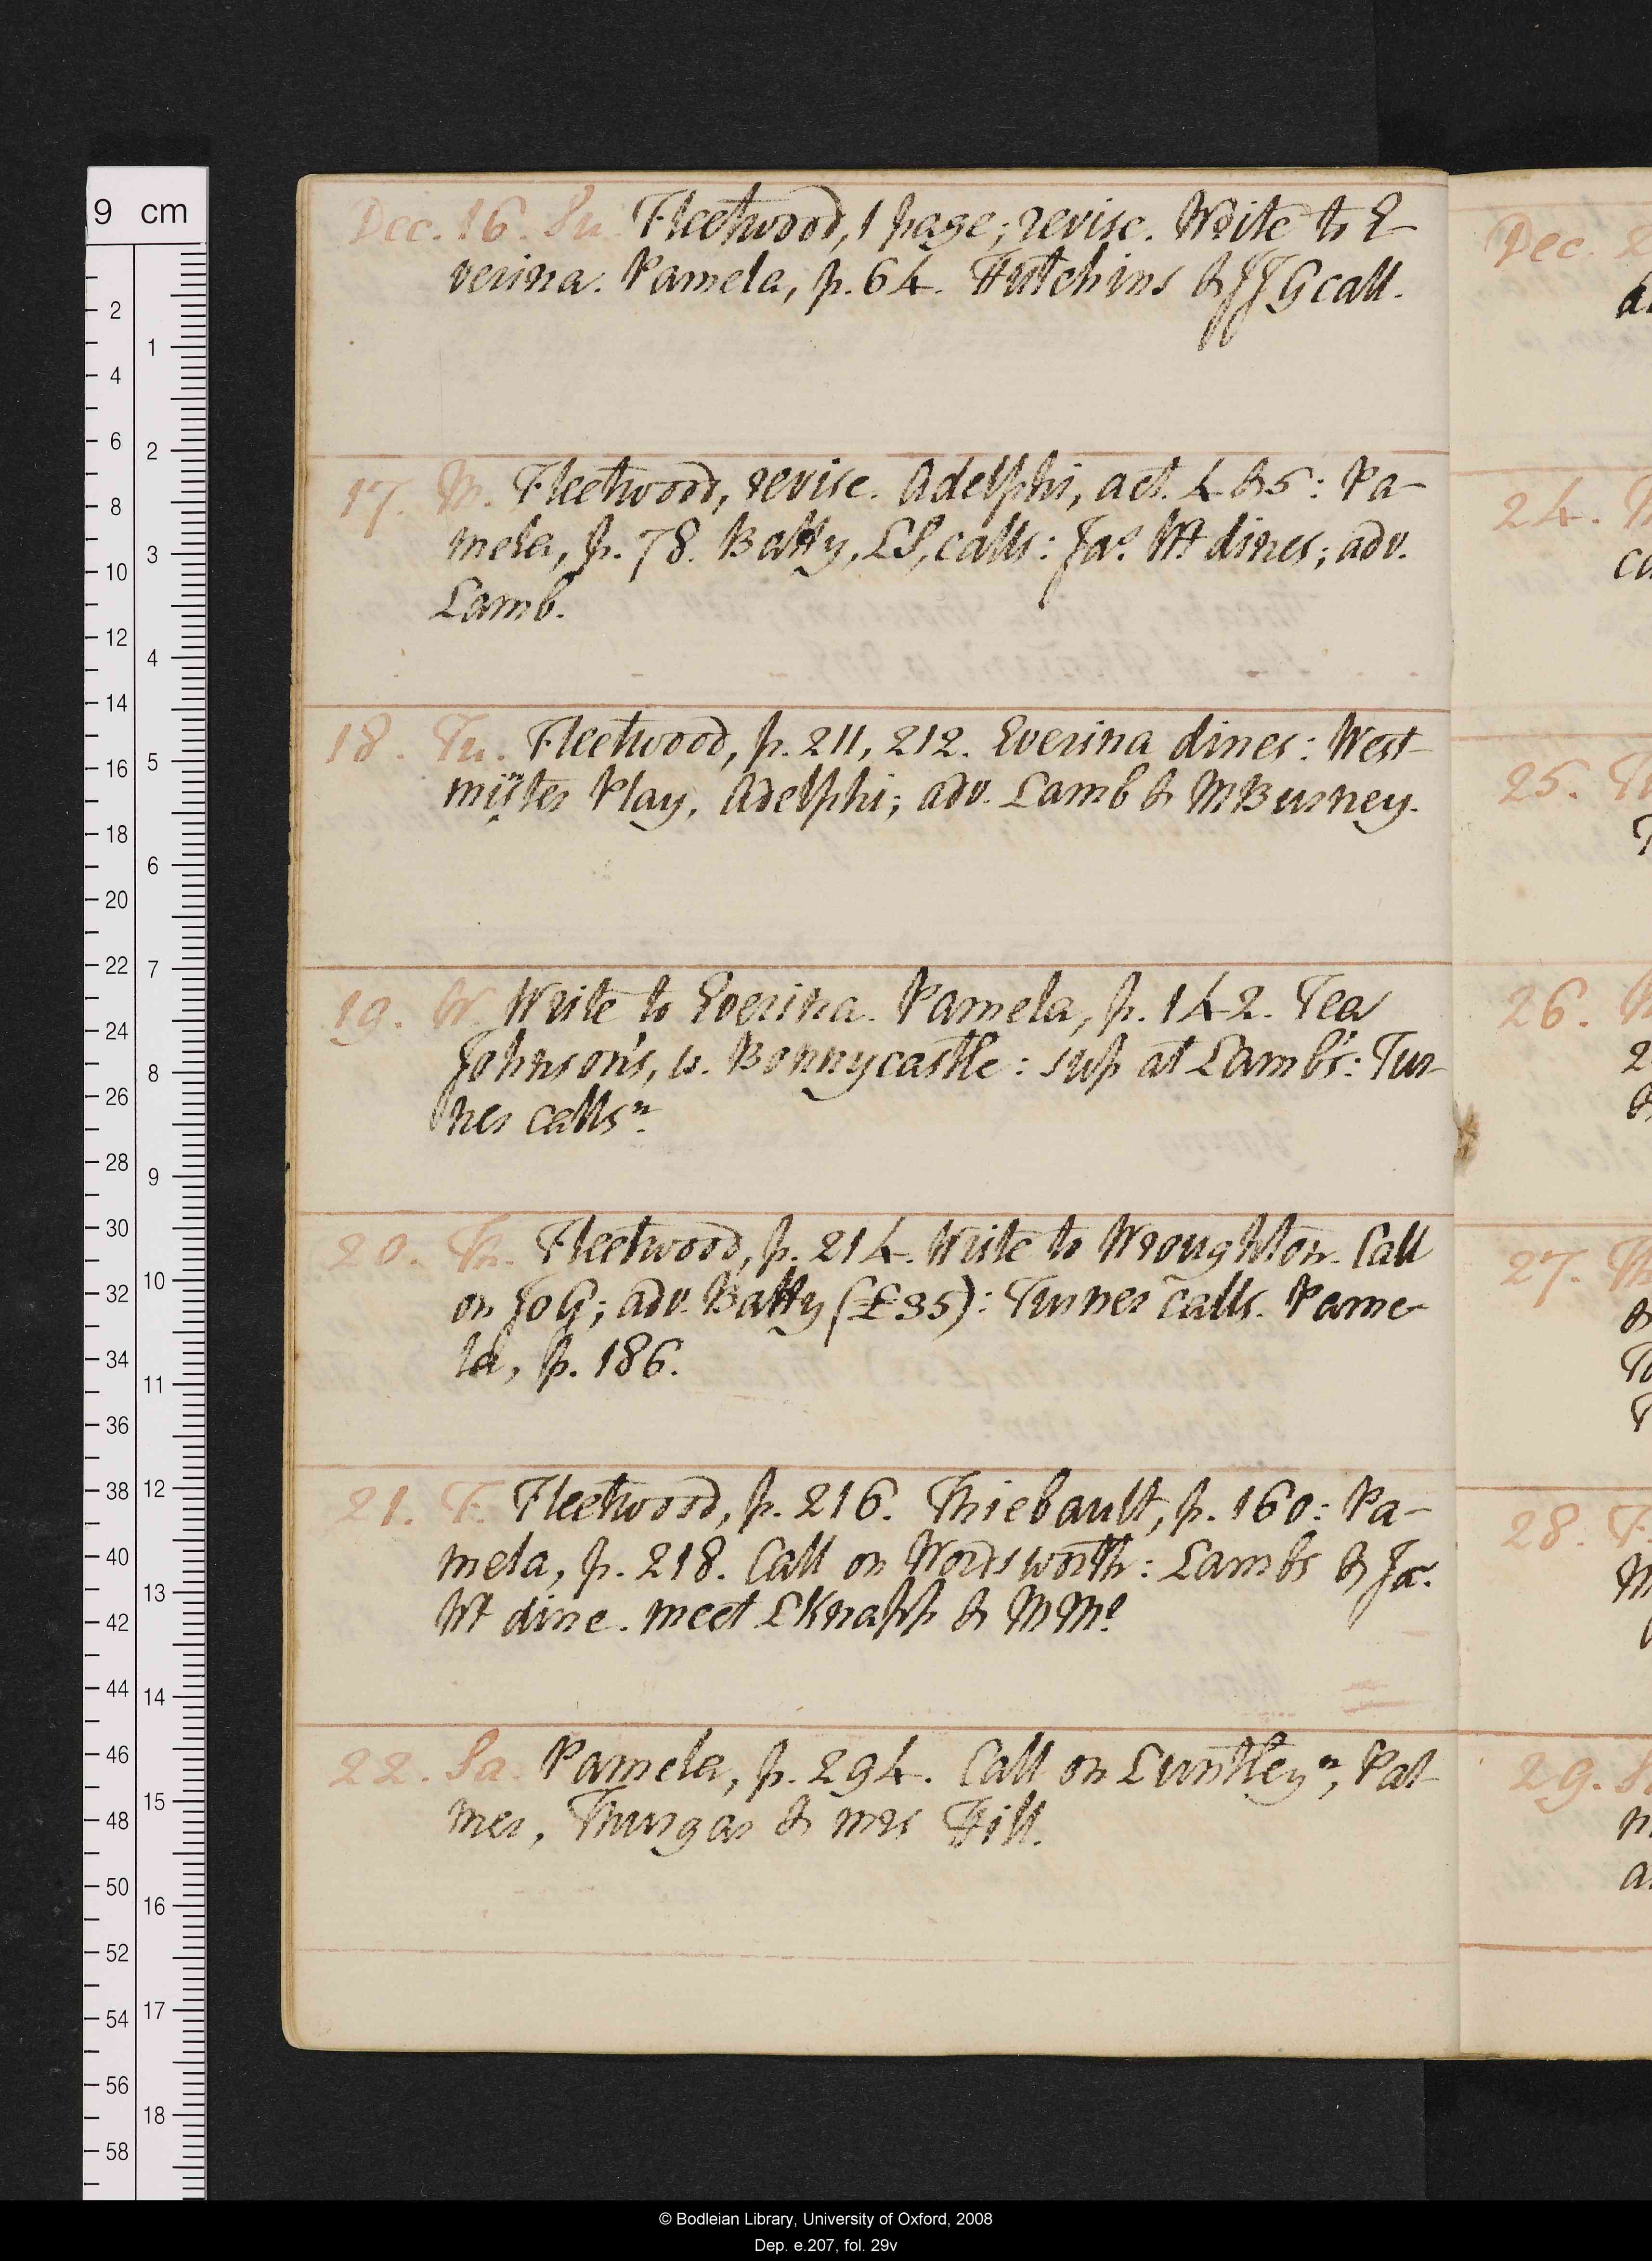 9 cm
Dec. 16. Su. Fleetwood, 1 page; revise. Write to E-
verina. Pamela, p. 64. Hutchins & JJG call.
17. M. Fleetwood, revise. Adelphi, act. 4 & 5: Pa-
mela, p. 78. Batty, LS, calls: Jas. Wt dines; adv.
Lamb.
18. Tu. Fleetwood, p. 211, 212. Everina dines: West-
mister Play, Adelphi; adv. Lamb & MBurney.
19. W. Write to Everina. Pamela, p. 142. Tea
Johnson's, w. Bonnycastle: sup at Lamb's: Tur-
ner calls n.
20. Th. Fleetwood, p. 214. Write to Wroughton. Call
on JoG; adv. Batty (£35): Turner calls. Pame-
la, p. 186.
21. F. Fleetwood, p. 216. Thiebault, p. 160: Pa-
mela, p. 218. Call on Wordsworth: Lambs & Ja.
Wt dine. meet LKnapp & M Me
22. Sa. Pamela, p. 294. Call on Luntley n, Pal-
mer, Thurgar & mrs Hill.
Dec.
24.
25.
26.
27.
28. F.
29.
© Bodleian Library, University of Oxford, 2008
Dep. e.207, fol. 29v